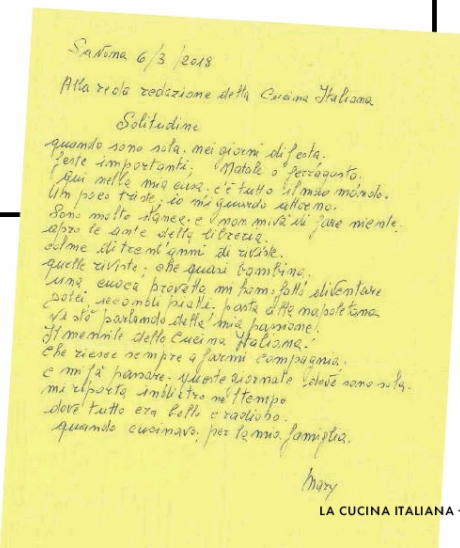 Savona 6/3/2018
Alla redazione della Cucina Italiana
Solitudine
quando sono sola. nei giorni di festa.
feste importanti; Natale o ferragosto.
qui nella mia casa. c'è tutto il mio mondo.
Un poco triste, io mi guardo attorno.
Sono molto stanca. e non mi và di fare niente.
apro le ante della libreria.
colme di trent'anni di riviste.
quelle riviste; che quasi bambina.
una cuoca provetta mi han fatto diventare
secondi piatti. pasta alla napoletana
vi stò parlando della mia passione!
Il mensile della Cucina Italiana.
che riesce sempre a farmi compagnia.
e mi fà passare. queste giornate dove sono sola.
mi riporta indietro nel tempo
dove tutto era bello e radioso.
quando cucinavo, per la mia famiglia.
Mary
LA CUCINA ITALIANA